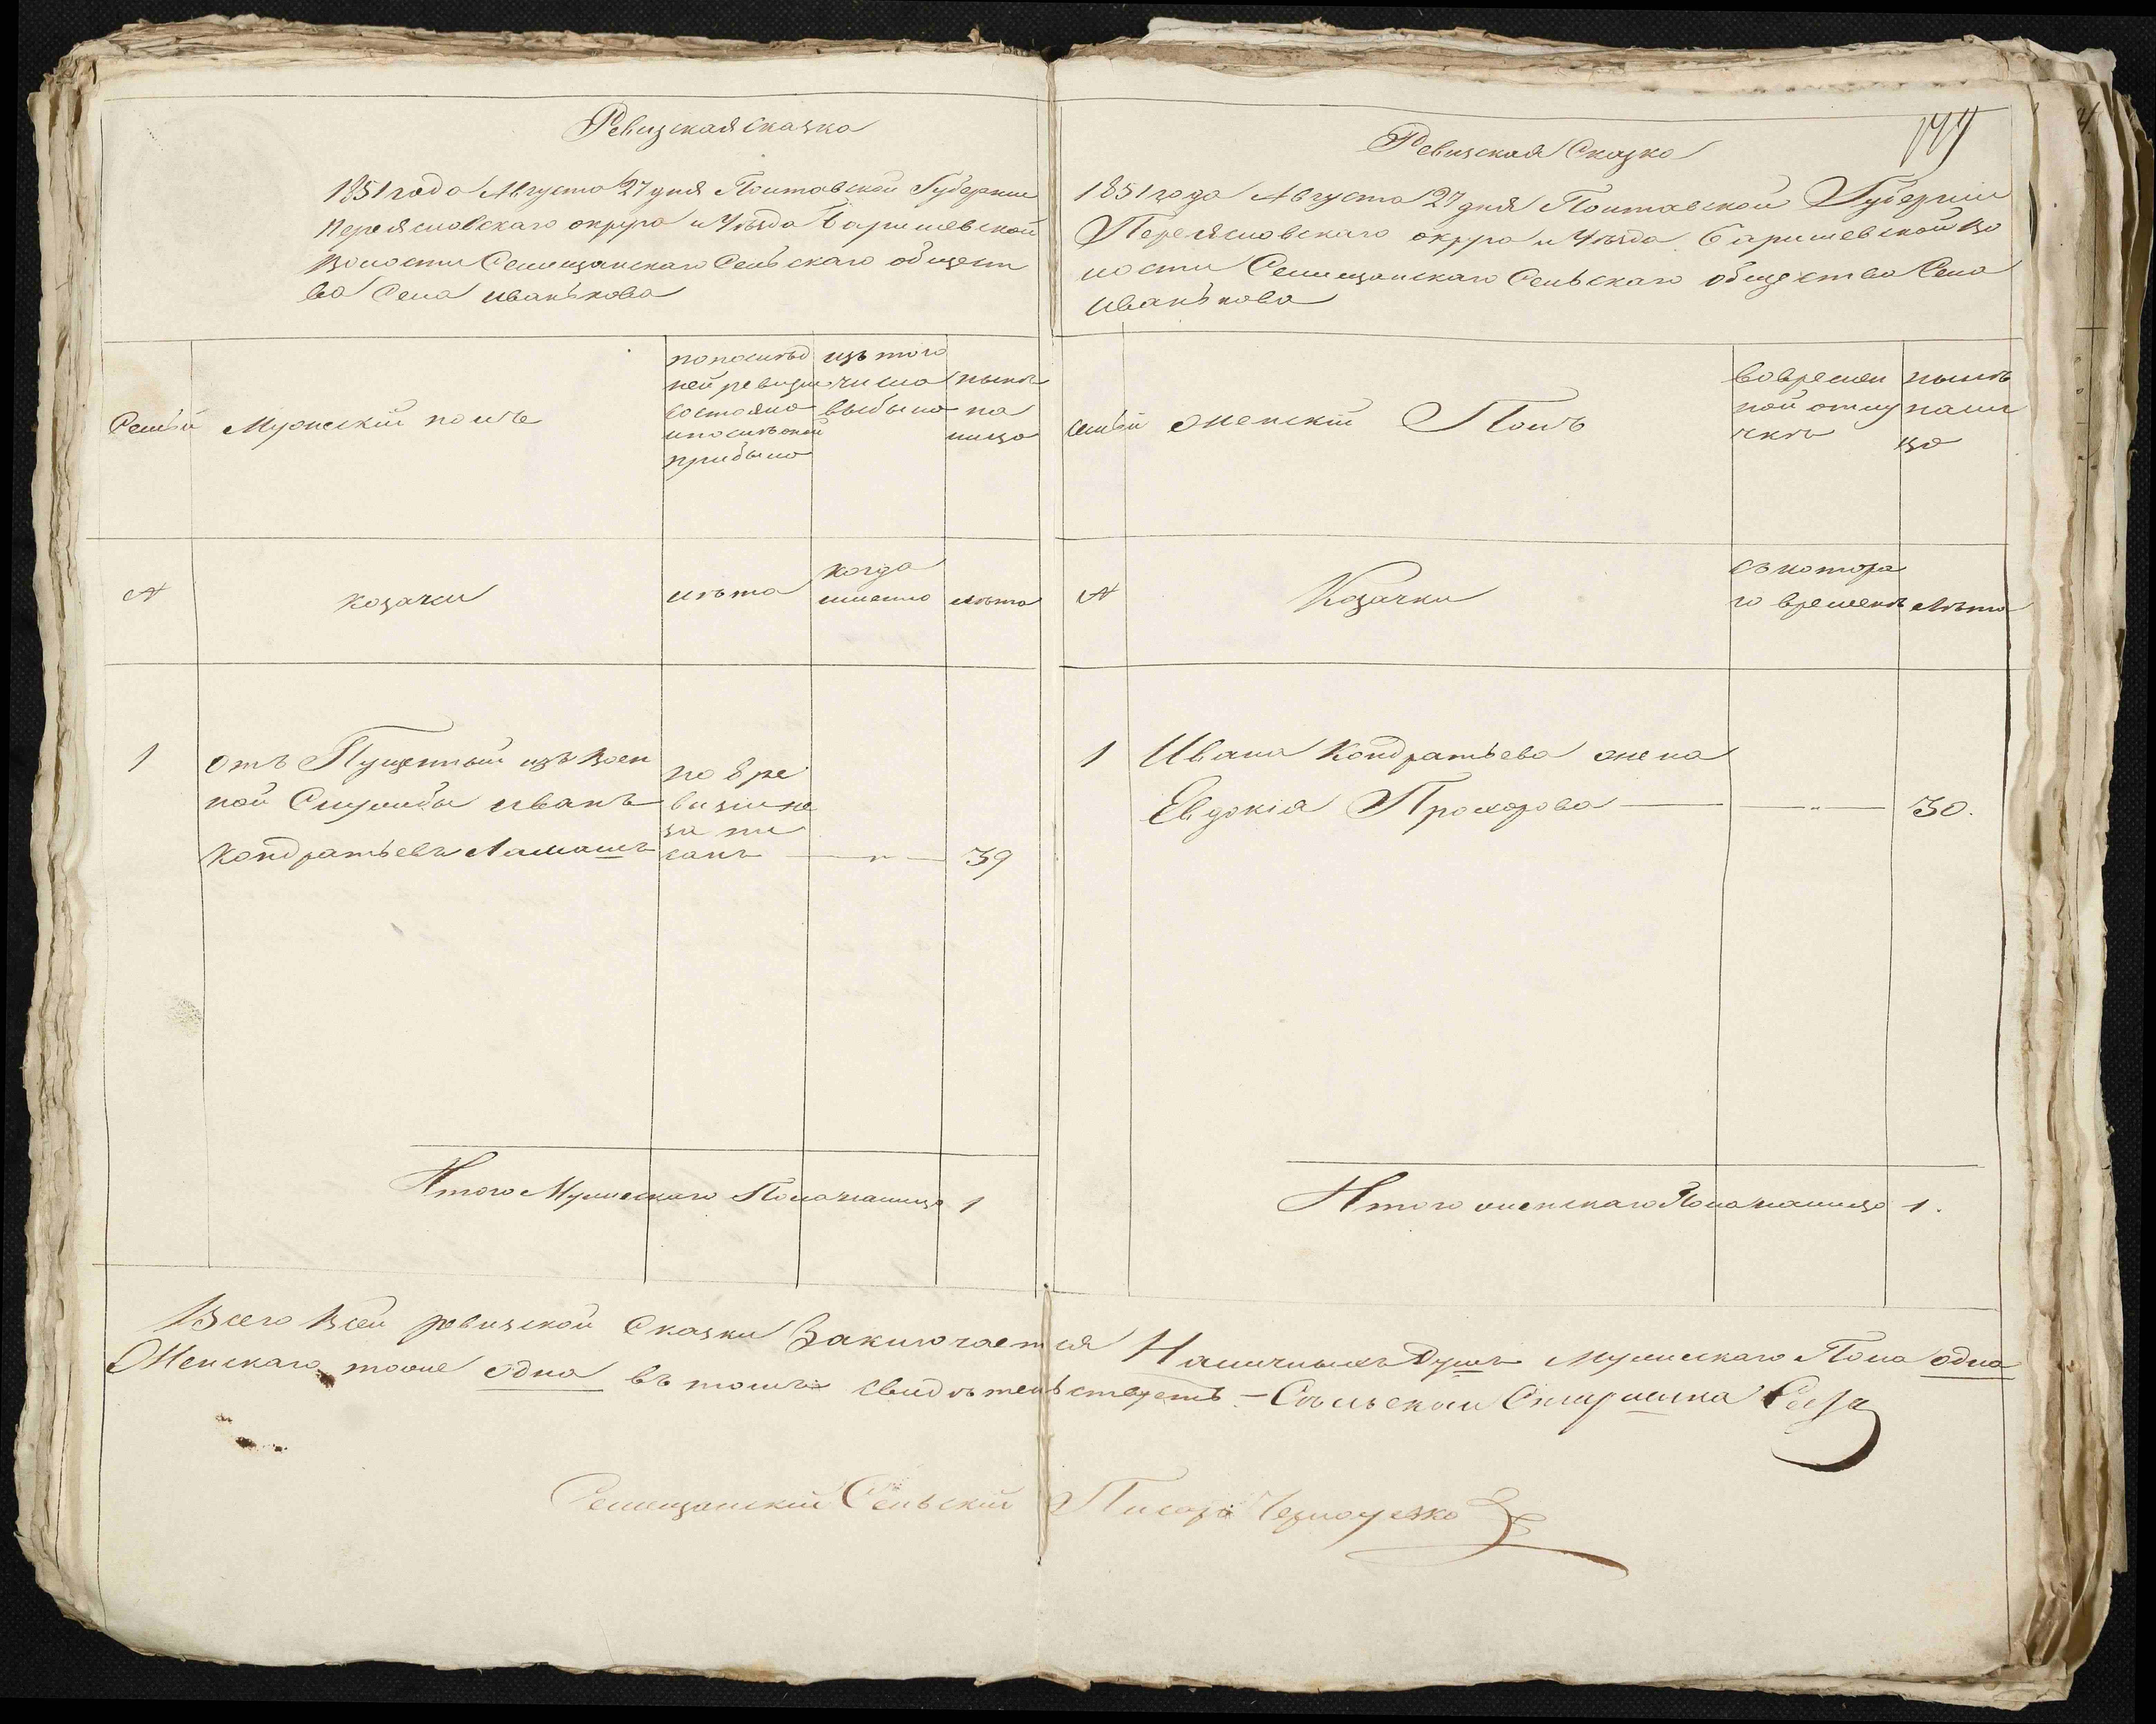 Ревизская сказка
1851 года Августа 27 дня Полтавской Губернии
Переясловскаго округа и Уѣзда Баришевской
Волости Селищанскаго Сельскаго общест
ва Села Иванькова
Семьи
Мужескій полъ
попослѣд
ней ревизіи
состояло
ипослѣ оной
прибыло
изъ того
числа
выбыло
нынѣ
на
лицо
№
козаки
лѣта
когда
именно
лѣта
1
отъ Пущенный изъ Воен
ной Службы иванъ
Кондратьевъ
по 8 ре
визіи не
за пи
санъ
— " —
39
Итого Мужескаго Пола налицо 1
Ревизская Сказка
1851 года Августа 27 дня Полтавской Губерніи
Переясловскаго округа и Уѣзда Баришевской Во
лости Селищанскаго Сельскаго общества Села
Иванькова
семьи
женскій Полъ
вовремен
ной отлу
чкѣ
нынѣ
нали
цо
№
Козачки
съ котора
го времени
Лѣта
1
Ивана Кондратьева жена
Евдокія Прохорова — — " — 30.
Итого женскаго Пола налицо 1.
Всего Всей ревизской Сказки Заключается Наличныхъ Душъ Мужескаго Пола одна
Женскаго тоже одна въ томъ свидѣтельствуетъ. – Сѣльскій Старшина
Селищанскій Сельскій Писарь